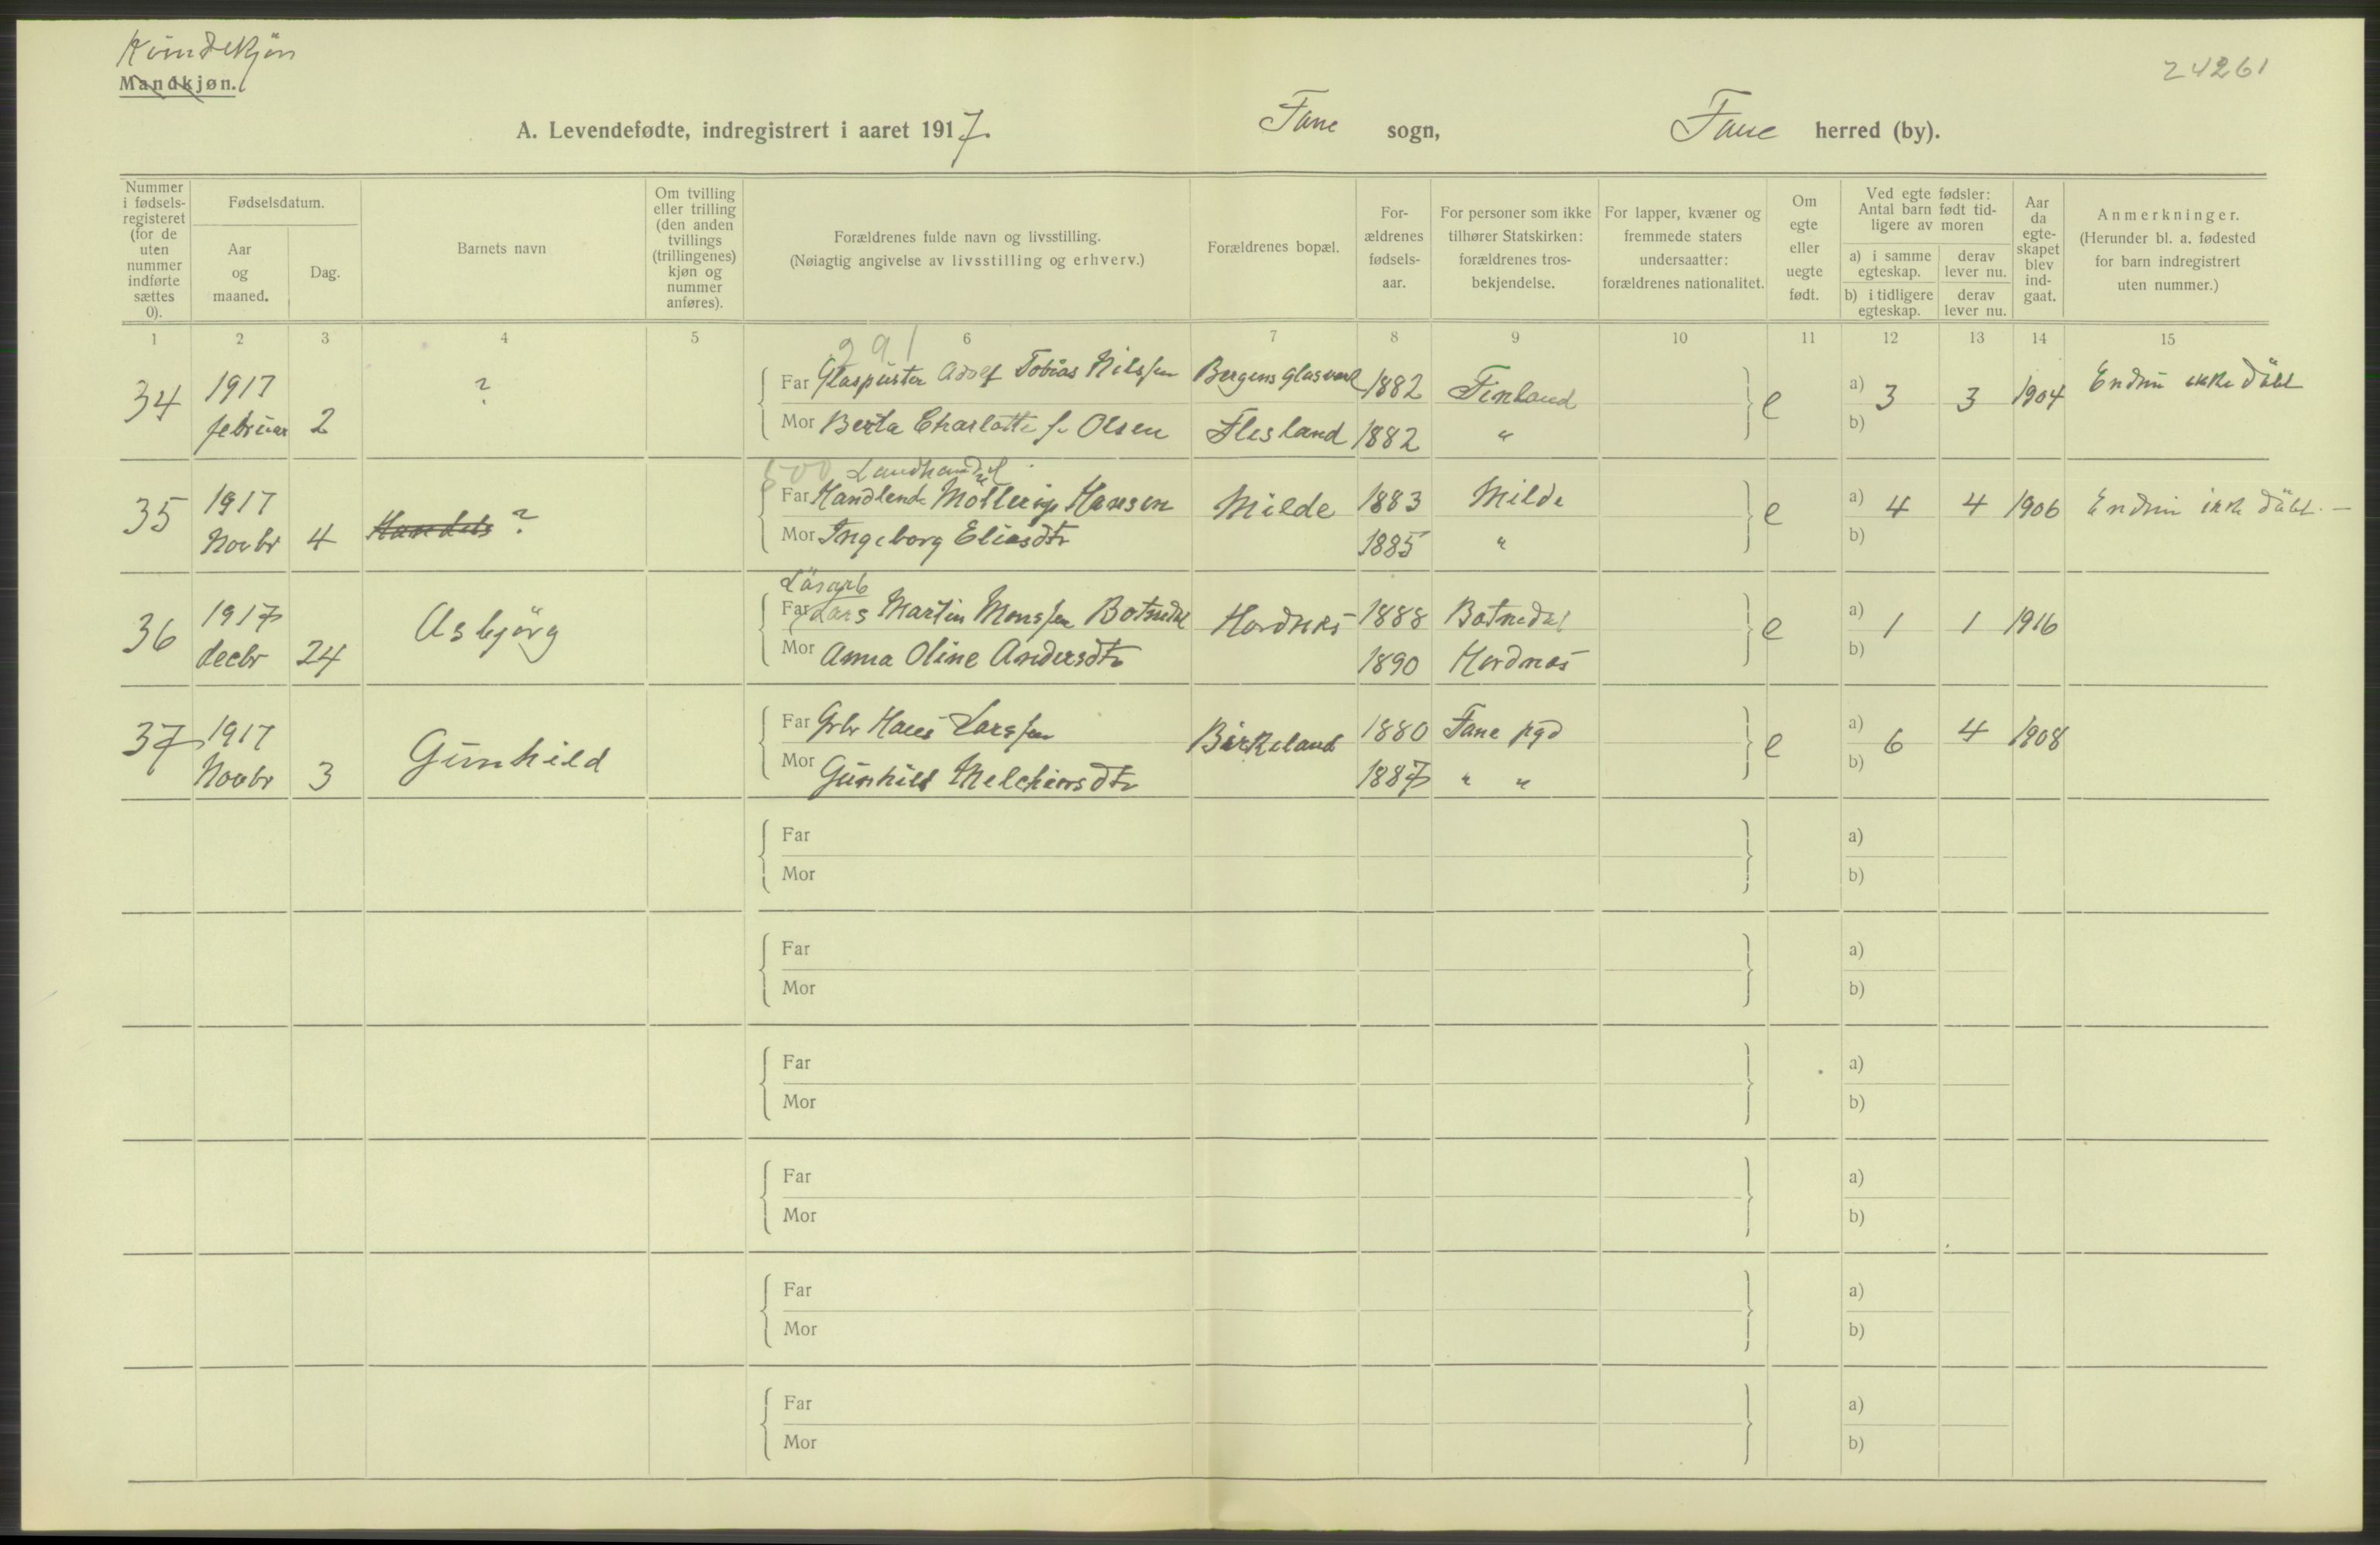 Kvindekjøn
Mandkjøn.
24261
A. Levendefødte, indregistrert i aaret 1917. Fane sogn, Fane herred (by).
Nummer i fødsels-registeret (for de uten nummer indførte sættes 0).
Fødselsdatum.
Aar og maaned.
Dag.
Barnets navn
Om tvilling eller trilling (den anden tvillings (trillingenes) kjøn og nummer anføres).
Forældrenes fulde navn og livsstilling.
(Nøiagtig angivelse av livsstilling og erhverv.)
Forældrenes bopæl.
For-ældrenes fødsels-aar.
For personer som ikke tilhører Statskirken: forældrenes tros-bekjendelse.
For lapper, kvæner og fremmede staters undersaatter: forældrenes nationalitet.
Om egte eller uegte født.
Ved egte fødsler: Antal barn født tid-ligere av moren
a) i samme egteskap.
derav lever nu.
b) i tidligere egteskap.
derav lever nu.
Aar da egte-skapet blev ind-gaat.
Anmerkninger.
(Herunder bl. a. fødested for barn indregistrert uten nummer.)
1 2 3 4 5 6 7 8 9 10 11 12 13 14 15
291
34 1917 februar 2 ? Far Glaspuster Adolf Tobias Nilssen Bergens glasverk 1882 Finland e a) 3 3 1904 Endnu ikke döbt
Mor Berta Charlotte f. Olsen Flesland 1882 " b)
500 Landhandel
35 1917 Novbr 4 Handels ? Far Handlende Möllerup Hansen Milde 1883 Milde e a) 4 4 1906 Endnu ikke döbt. —
Mor Ingeborg Eliasdtr 1885 " b)
Lösarb
36 1917 decbr 24 Asbjörg Far Lars Martin Monssen Botnedal Hordnes 1888 Botnedal e a) 1 1 1916
Mor Anna Oline Andersdtr 1890 Hordnes b)
37 1917 Novbr 3 Gunhild Far Gbr Hans Larssen Birkeland 1880 Fane pgd e a) 6 4 1908
Mor Gunhild Melchiorsdtr 1887 " " b)
Far a)
Mor b)
Far a)
Mor b)
Far a)
Mor b)
Far a)
Mor b)
Far a)
Mor b)
Far a)
Mor b)